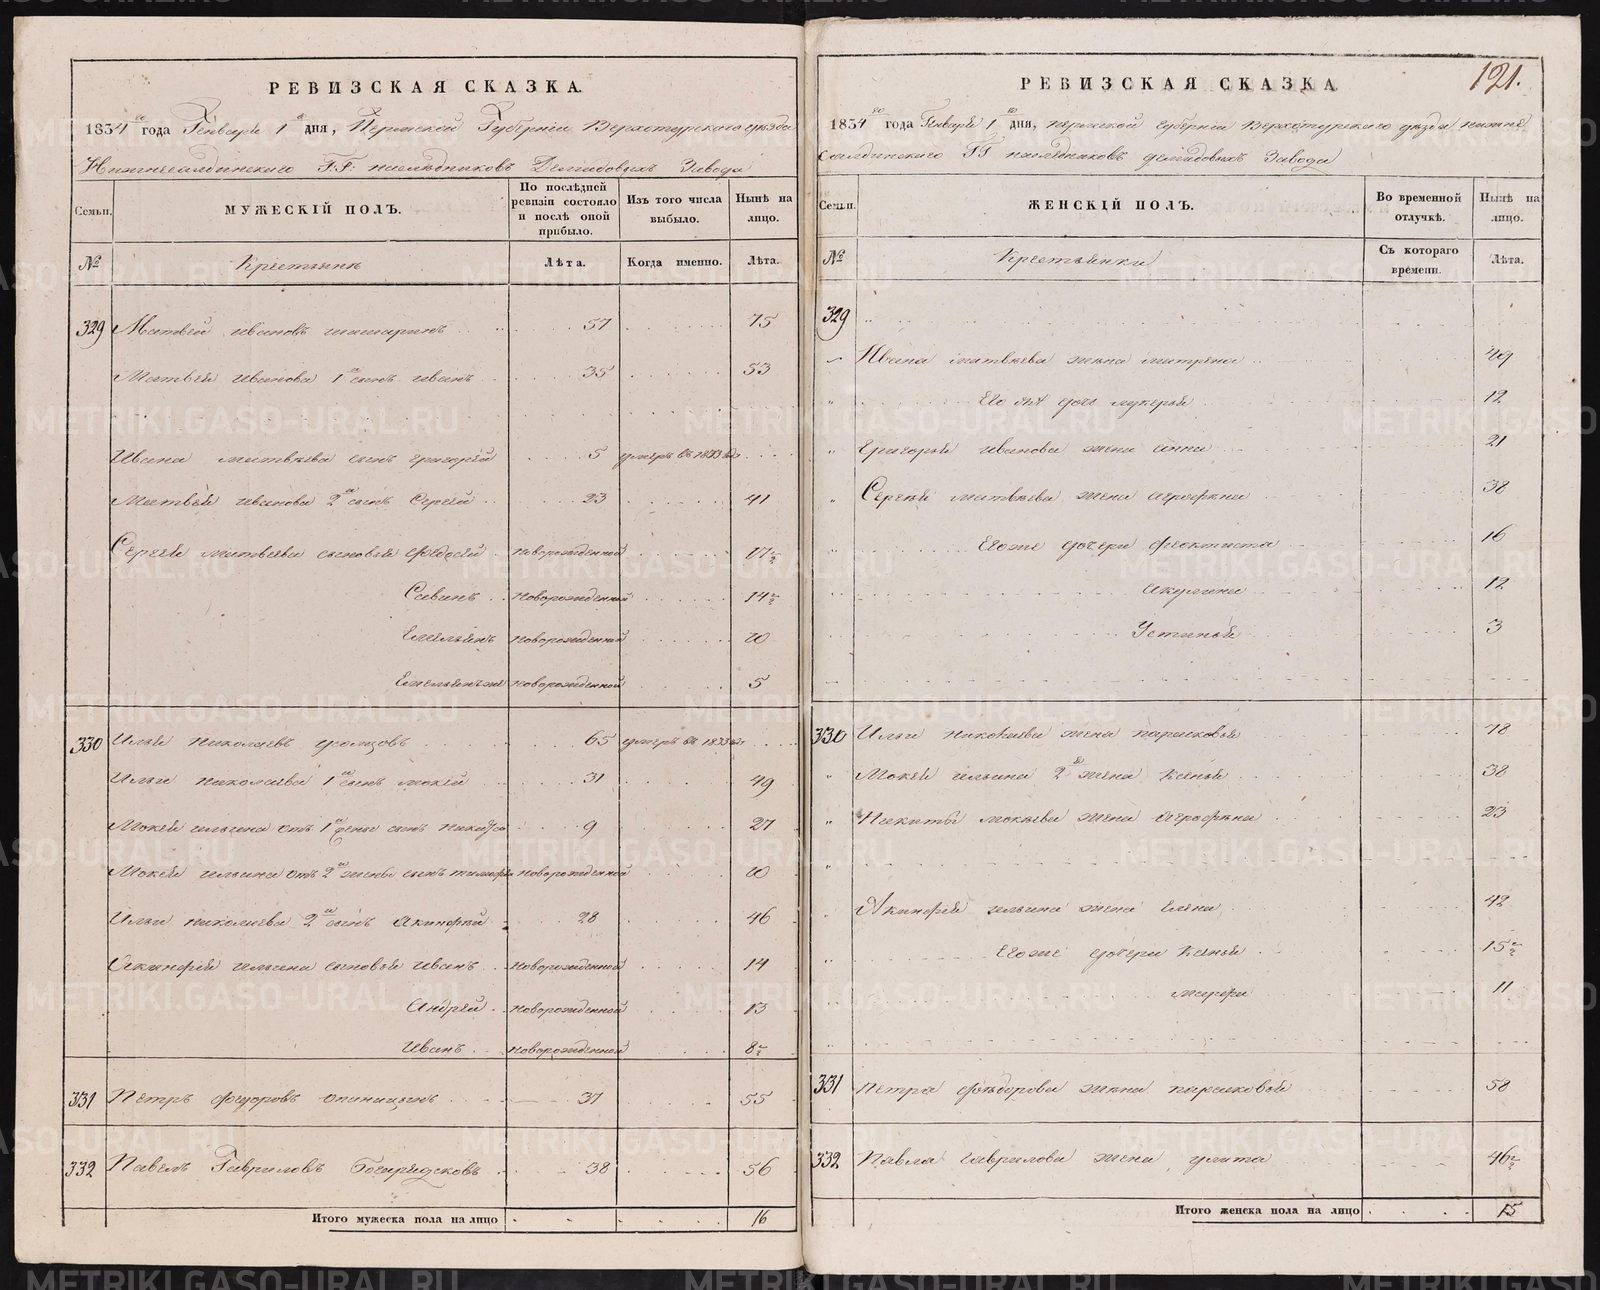 РЕВИЗСКАЯ СКАЗКА.
1854 го года Генваря 1 го дня, Пермской Губерніи Верхотурского уезда
Нижнесалдинского Г.Г: наследниковъ Демидовыхъ Завода
Семьи.
МУЖЕСКІЙ ПОЛЪ.
По послѣдней ревизіи состояло и послѣ оной прибыло.
Изъ того числа выбыло.
Нынѣ на лицо.
№
Крестьяне
Лѣта.
Когда именно.
Лѣта.
329 Матвей Ивановъ 57 75
Матвей Иванова 1й сынъ Иванъ 35 53
Ивана Матвеева сынъ Григорей 5 умеръ въ 1853
Матвей Иванова 2й сынъ Сергей 23 41
Сергея Матвеева сыновья Федосей новорожденной 17½
Савинъ новорожденной 14½
Емельянъ новорожденной 10
Емельянъ же новорожденной 5
330 Илья Николаевъ 65 умеръ въ 1853
Ильи Николаева 1й сынъ Мокей 31 49
Мокея Ильина отъ 1й жены сынъ Никита 9 27
Мокея Ильина отъ 2й жены сынъ новорожденной 10
Ильи Николаева 2й сынъ Акинфий 28 46
Акинфия Ильина сыновья Иванъ новорожденной 14
Андрей новорожденной 13
Иванъ новорожденной 8½
331 Петръ Федоровъ 37 55
332 Павелъ Гавриловъ 38 56
Итого мужеска пола на лицо 16
121.
РЕВИЗСКАЯ СКАЗКА
1854 го года Генваря 1 го дня, Пермской Губерніи Верхотурского уезда Нижне
салдинского ГГ наследниковъ Демидовыхъ Завода
Семьи.
ЖЕНСКІЙ ПОЛЪ.
Во временной отлучкѣ.
Нынѣ на лицо.
№
Крестьянки
Съ котораго времени.
Лѣта.
329
Ивана Матвеева жена Матрена 49
Его дочь Лукерья 12
Григорья Иванова жена Анна 21
Сергея Матвеева жена Аграфена 38
Его же дочери Феоктиста 16
Акулина 12
Устинья 3
330 Ильи Николаева жена Парасковья 78
Мокея Ильина 2я жена Ксенья 38
Никиты Мокеева жена Аграфена 23
Акинфия Ильина жена Елена 42
Его же дочери Ксенья 15½
Марфа 11
331 Петра Федорова жена Парасковья 58
332 Павла Гаврилова жена Улита 46½
Итого женска пола на лицо 15
METRIKI.GASO-URAL.RU